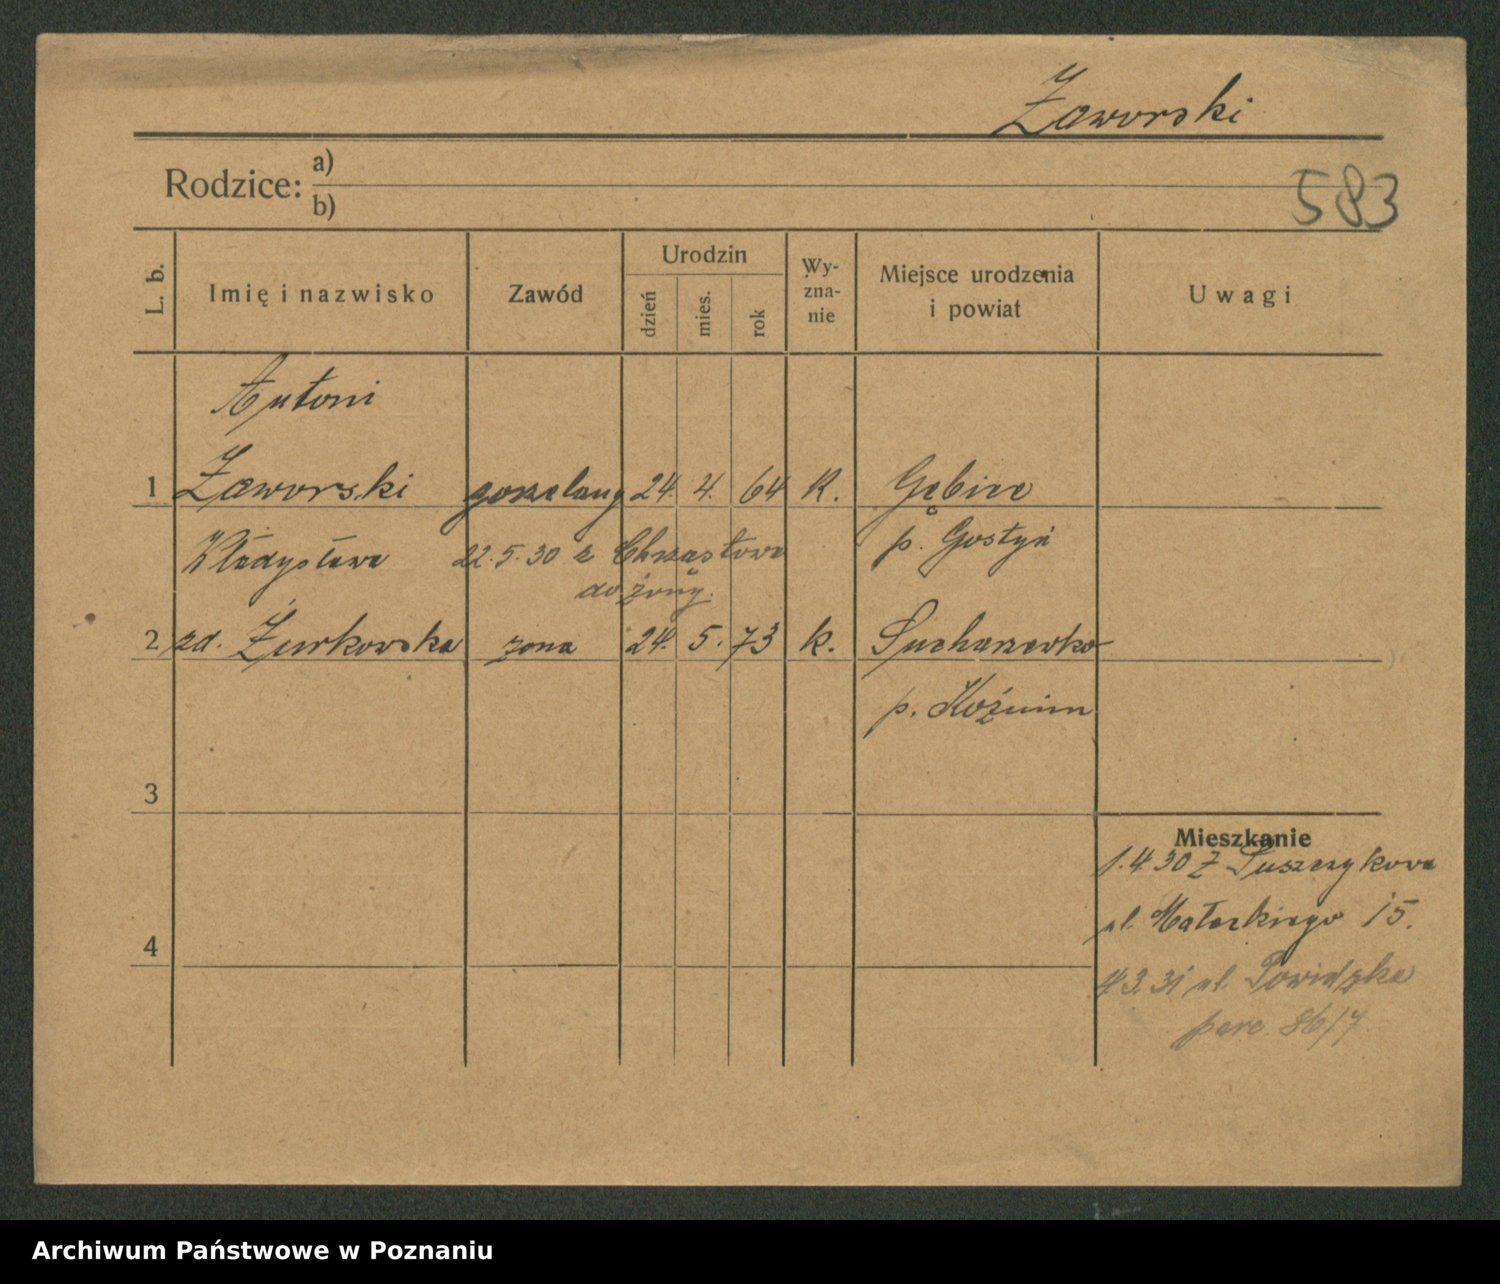 Zaworski
Rodzice: a)
b)
583
L. b. Imię i nazwisko Zawód Urodzin dzień mies. rok Wy-zna-nie Miejsce urodzenia i powiat Uwagi
Antoni
1 Zaworski gorzelany 24. 4. 64 K. Gębice
Władysława 22.5.30 z Chrząstowa p. Gostyń
do żony.
2 zd. Żurkowska żona 24. 5. 73 k. Sucharzewko
p. Koźmin
3
Mieszkanie
1.4 30 z Suszczykowa
ul. Małeckiego 15.
4
4 3.31 ul. Powidzka
parc. 86/7
Archiwum Państwowe w Poznaniu